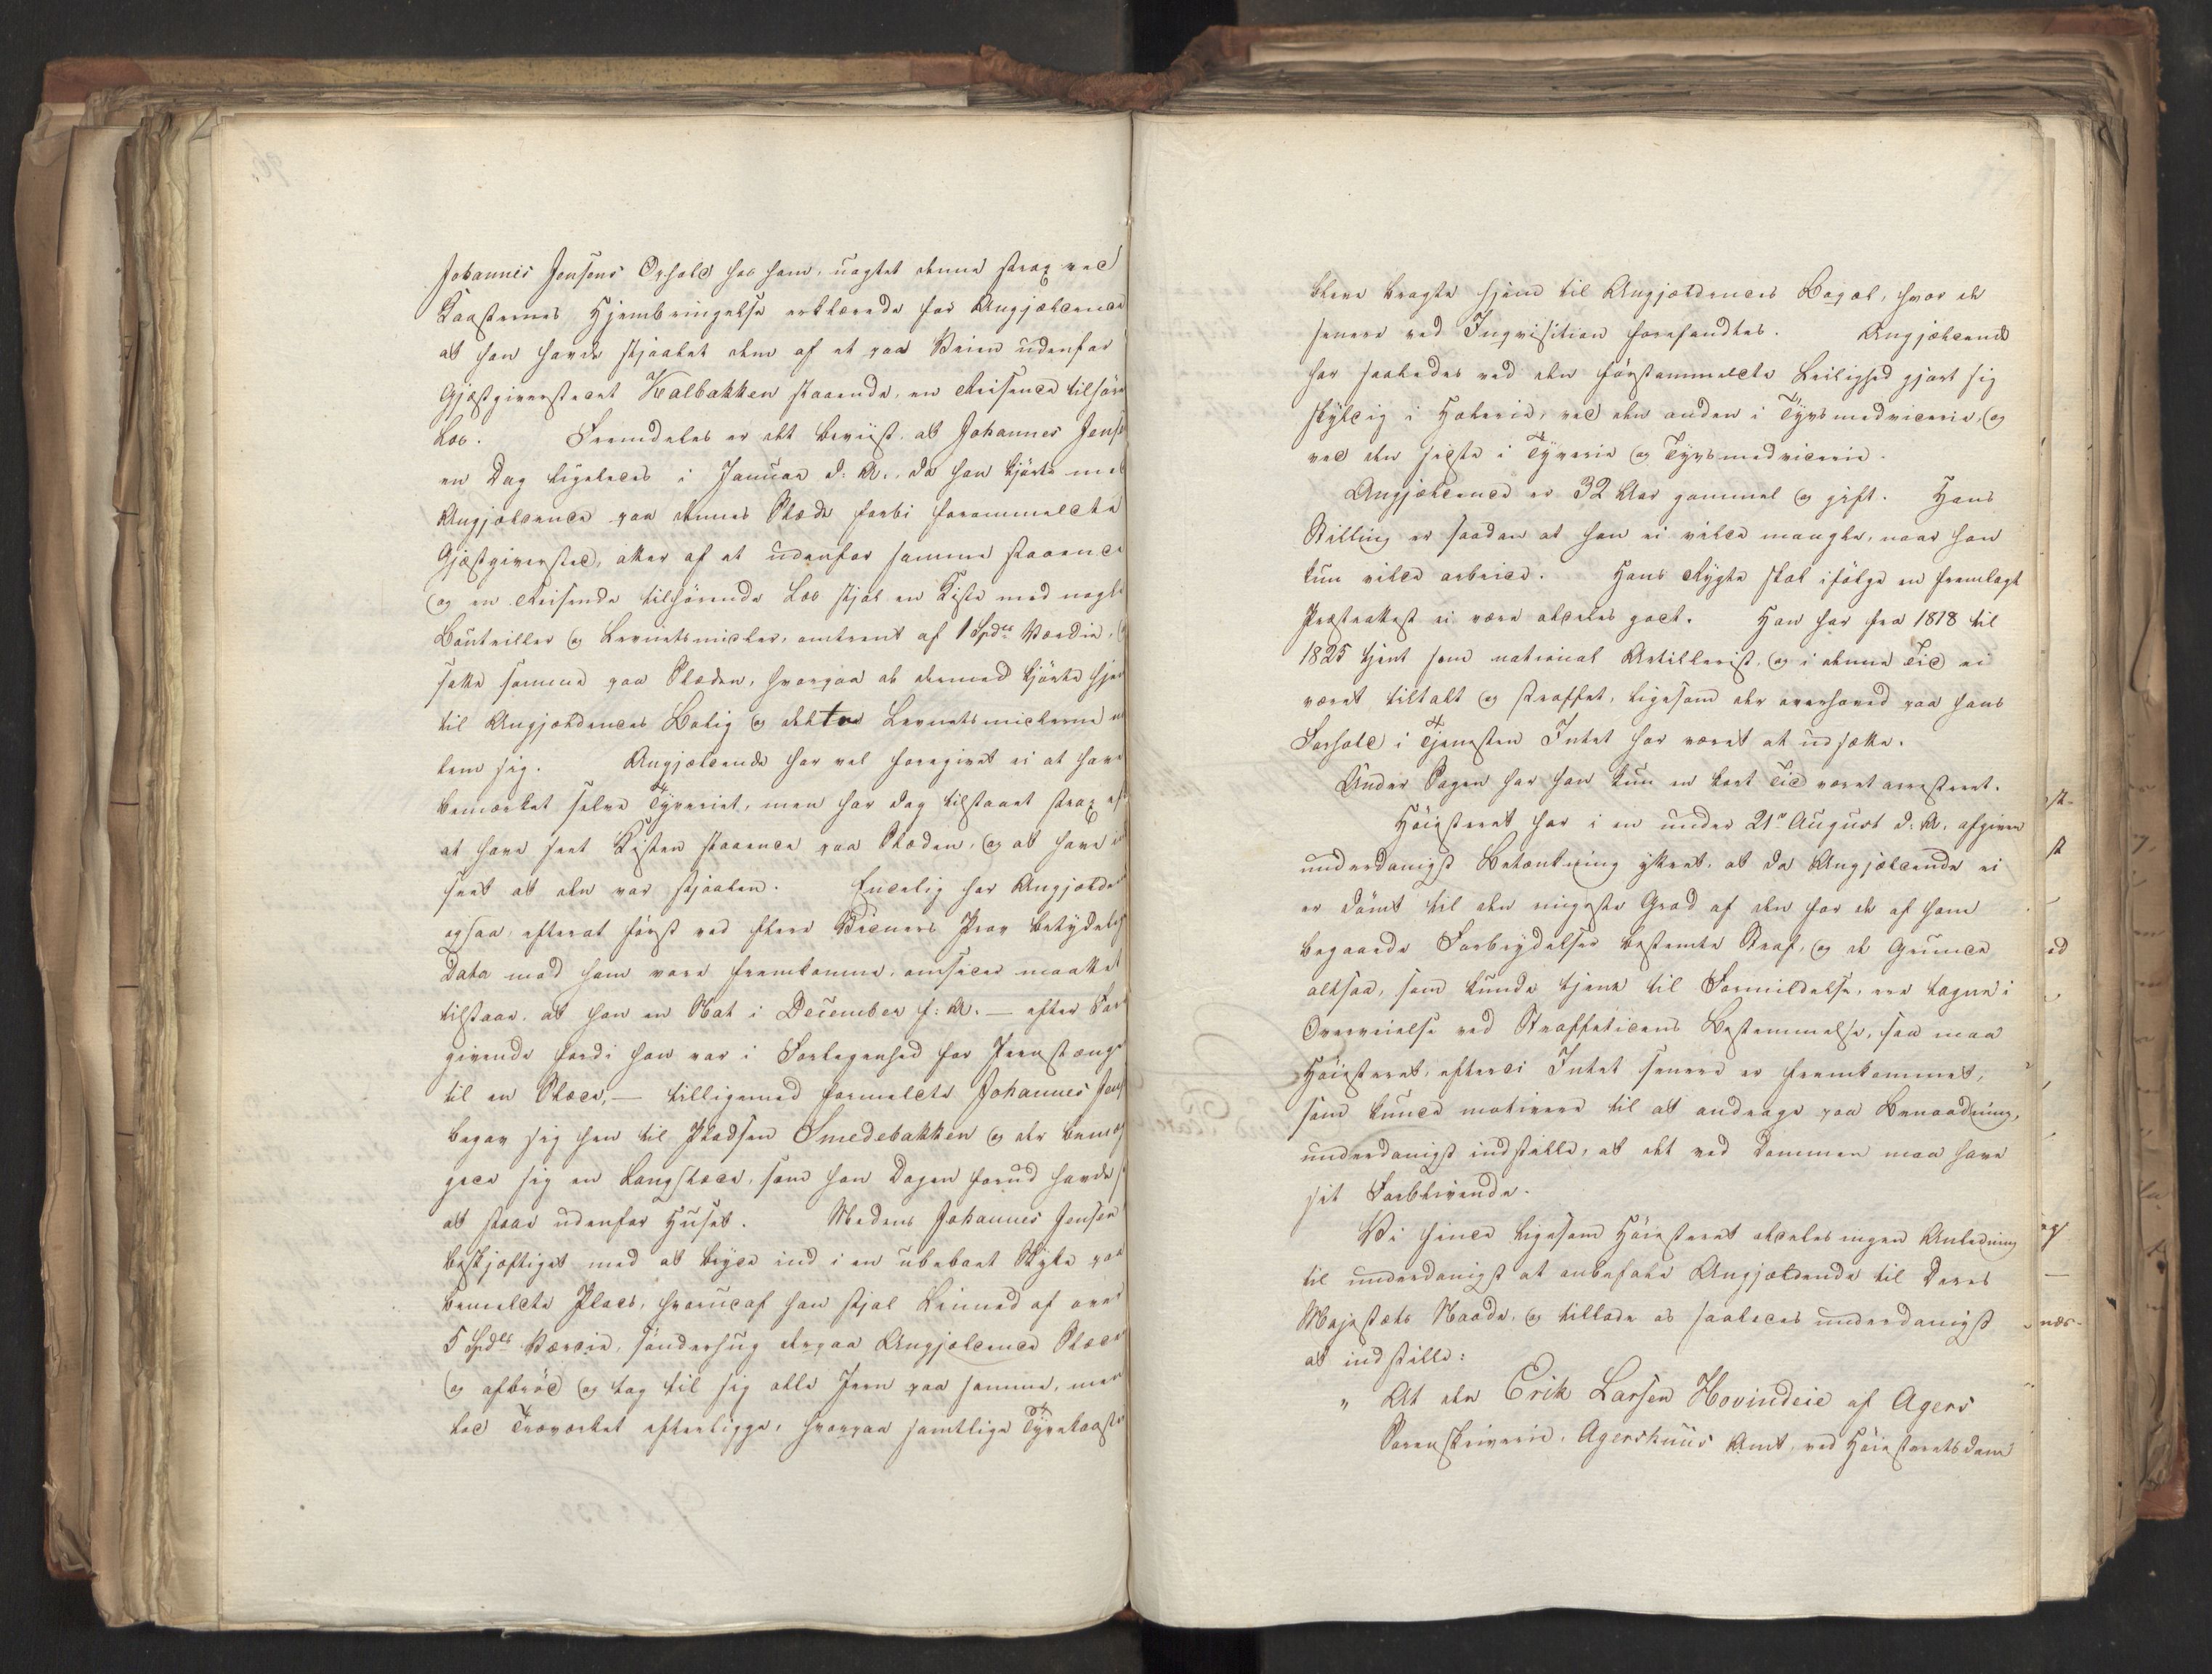 Johannes Jensens Ophold hos ham, uagtet denne strax ved
Kaasternes Hjembringelse erklærede for Angjældende
at han havde stjaalet dem af et paa Veien udenfor
Gjæstgiverstedet Kalbakken staaende, en Reisende tilhøre
Læs. Fremdeles er det beviist, at Johannes Jens
en Dag ligeledes i Januar d: A., da han kjørte med
Angjældende paa dennes Slæde forbi forommeldte
Gjæstgiversted, atter af et udenfor samme staaende
og en Reisende tilhørende Læs stjal en Kiste med nogle
Bouteiller og Levnetsmidler, omtrent af 1 Spdrs Værdie,
satte samme paa Slæden, hvorpaa de dermed kjørte hje
til Angjældendes Bolig og delte Levnetsmidlerne
lem sig. Angjældende har vel foregivet ei at have
bemærket selve Tyveriet, men har dog tilstaaet strax ef
at have seet Kisten staaende paa Slæden, og at have
seet at den var stjaalen. Endelig har Angjælde
ogsaa, efterat først ved flere Vidners Prov betydelig
Data mod ham vare fremkomne, omsider maattet
tilstaae, at han en Nat i December f: A. — efter For
givende fordi han var i Forlegenhed for Jernstænge
til en Slæde, — tilligemed formeldte Johannes Jens
begav sig hen til Pladsen Smedebakken og der bemæg
gede sig en Langslæde, som han Dagen forud havde s
at staae udenfor Huset. Medens Johannes Jensen
beskjæftiget med at bryde ind i en ubeboet Stue paa
bemeldte Plads, hvorudaf han stjal Leinned af over
5 Spdlrs Værdie, sønderhug derpaa Angjældende Slæde
og afbrød og tog til sig alle Jern paa samme, men
lod Træværket efterligge, hvorpaa samtlige Tyvekaaste
bleve bragte hjem til Angjældendes Bopæl, hvor de
senere ved Inqvisition forefandtes. Angjældende
har saaledes ved den førstommeldte Leilighed gjort sig
skyldig i Hæleri, ved den anden i Tyvsmedviderie, og
ved den sidste i Tyverie og Tyvsmedviderie.
Angjældende er 32 Aar gammel og gift. Hans
Stilling er saadan at han ei vilde mangle, naar han
kun vilde arbeide. Hans Rygte skal ifølge en fremlagt
Præsteattest ei være aldeles godt. Han har fra 1818 til
1825 tjent som national Artillerist, og i denne Tid ei
været tiltalt og straffet, ligesom der overhoved paa hans
Forhold i Tjenesten Intet har været at udsætte.
Under Sagen har han kun en kort Tid været arresteret.
Høiesteret har i en under 21de August d: A. afgiven
underdanigst Betænkning yttret, at da Angjældende ei
er dømt til den ringeste Grad af den for de af ham
begaaede Forbrydelser bestemte Straf, og de Grunde
altsaa, som kunde tjene til Formildelse, ere tagne i
Overveielse ved Straffetidens Bestemmelse, saa maa
Høiesteret, efterdi Intet senere er fremkommet,
som kunde motivere til at andrage paa Benaadning,
underdanigst indstille, at det ved Dommen maa have
sit Forblivende.
Vi finde ligesom Høiesteret aldeles ingen Anledning
til underdanigst at anbefale Angjældende til Deres
Majestæts Naade, og tillade os saaledes underdanigst
at indstille:
" At den Erik Larsen Hovindeie af Agers
Sorenskriverie, Agershuus Amt, ved Høiesteretsdom